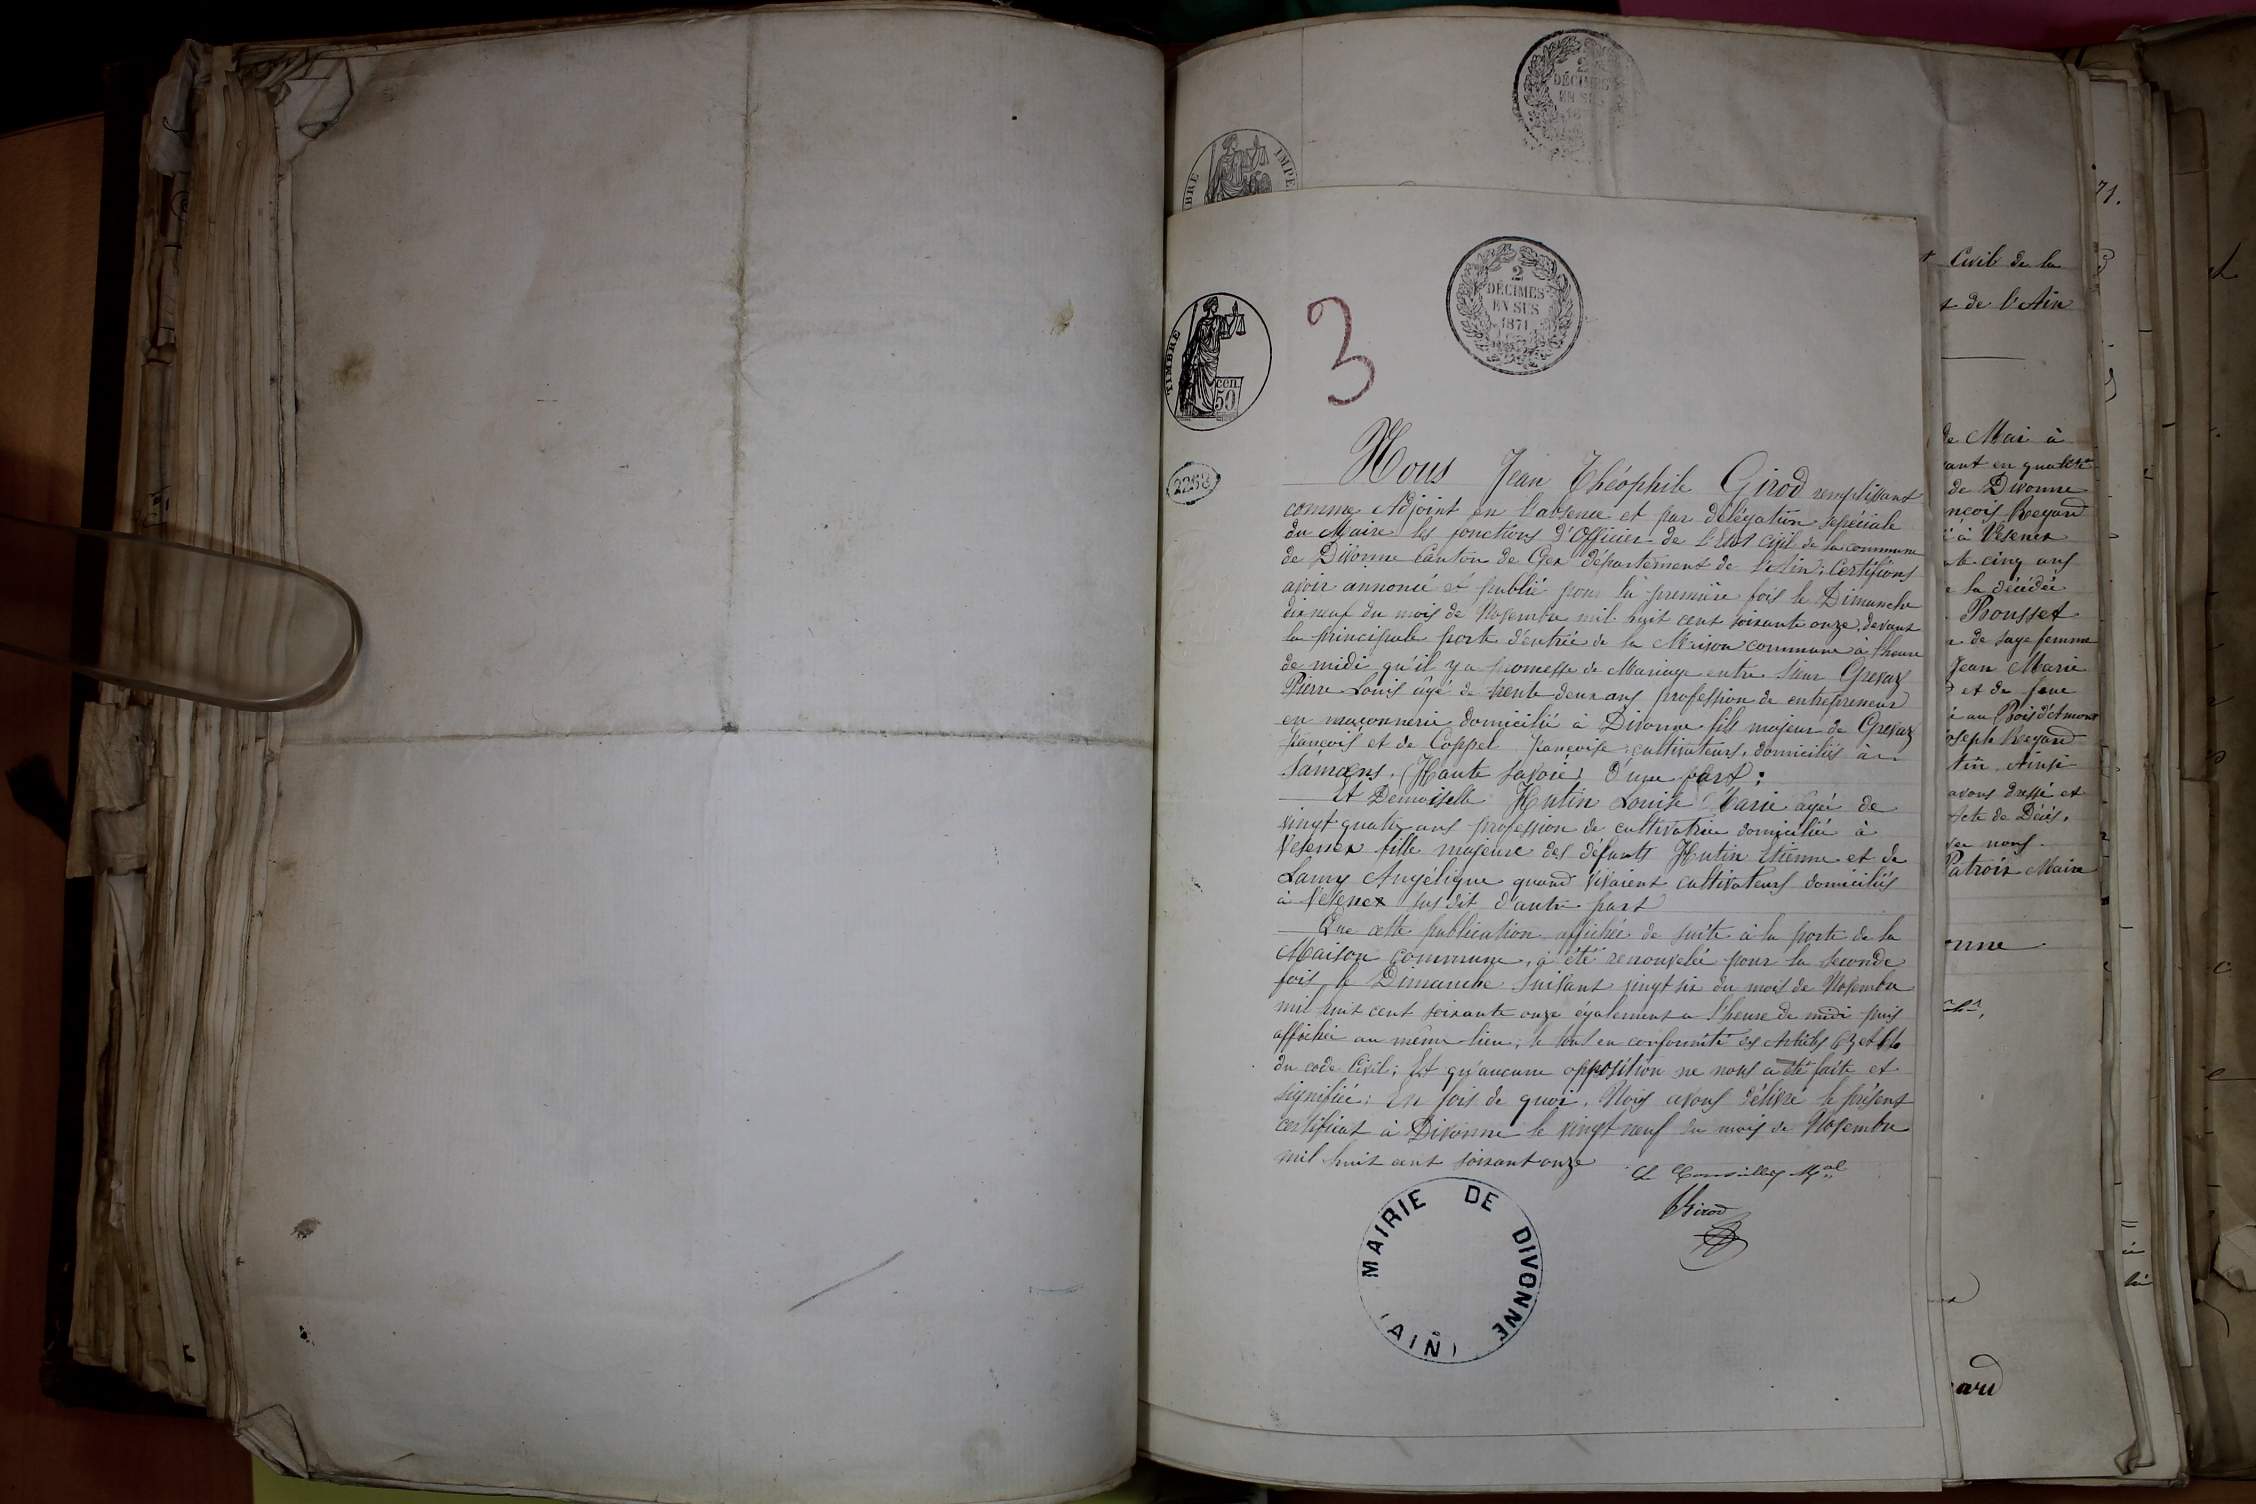 2
DÉCIMES
EN SUS
TIMBRE IMPE
2
DÉCIMES
EN SUS
1871
TIMBRE
cen.
50
3
2268
Nous Jean Théophile Girod remplissant
comme Adjoint en l'absence et par délégation spéciale
du Maire les fonctions d'Officier de l'Etat civil de la commune
de Divonne Canton de Gex département de l'Ain; Certifions
avoir annoncé et publié pour la première fois le Dimanche
dix neuf du mois de Novembre mil huit cent soixante onze, devant
la principale porte d'entrée de la Maison commune à l'heure
de midi qu'il y a promesse de Mariage entre sieur Grevaz
Pierre Louis âgé de trente deux ans profession de entrepreneur
en maçonnerie domicilié à Divonne fils majeur de Grevaz
François et de Coppel Françoise cultivateurs, domiciliés à
Samoëns, (Haute Savoie) d'une part;
Et Demoiselle Hutin Louise Marie agée de
vingt quatre ans profession de cultivatrice domiciliée à
Vesenex fille majeure des défunts Hutin Etienne et de
Lamy Angélique quand vivaient cultivateurs domiciliés
à Vesenex sus dit d'autre part
Que cette publication affichée de suite à la porte de la
Maison commune, a été renouvelée pour la seconde
fois le Dimanche suivant vingt six du mois de Novembre
mil huit cent soixante onze également a l'heure de midi puis
affichée au même lieu, le tout en conformité des Articles 63 et 64
du code Civil; Et qu'aucune opposition ne nous a été faite et
signifiée; En fois de quoi, Nous avons délivré le présent
certificat à Divonne le vingt neuf du mois de Novembre
mil huit cent soixant onze
Le Conseiller Mal
Girod
MAIRIE DE DIVONNE
(AIN)
Civil de la
de l'Ain
de Mai à
de Divonne
Regard
à Vesenex
cinq ans
la décédée
Rousset
de sage femme
Jean Marie
et de feue
au Bois d'Amont
Regard
Ainsi
avons dressé et
Acte de Décès,
nous
Patroix Maire
71.